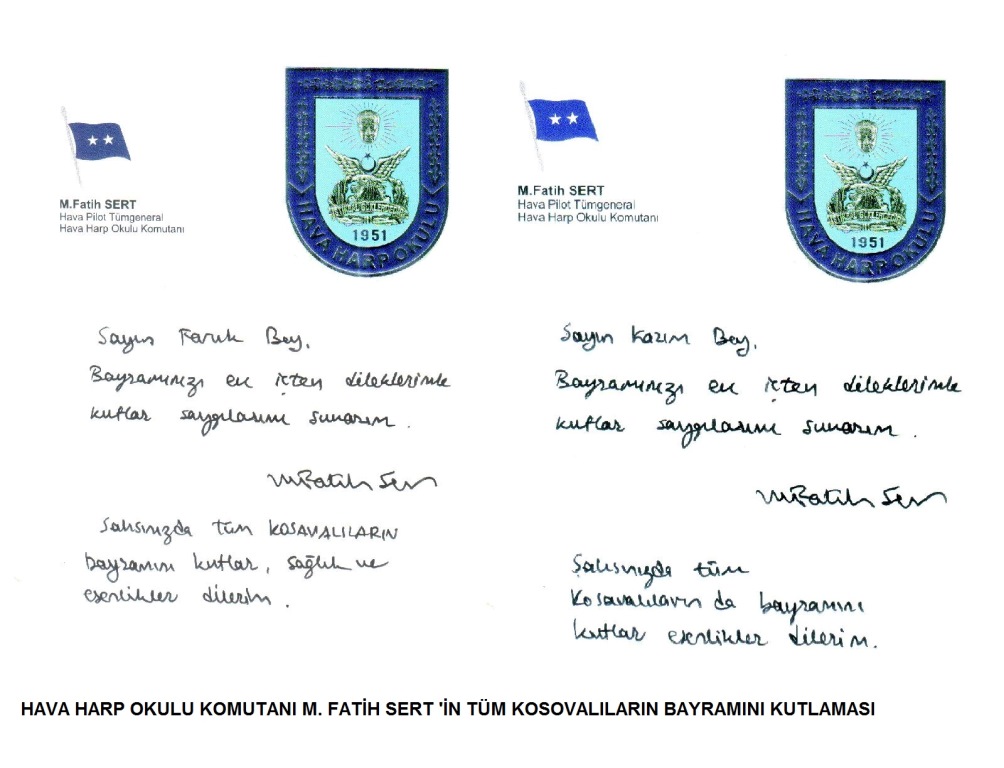 M.Fatih SERT
Hava Pilot Tümgeneral
Hava Harp Okulu Komutanı
1951
HAVA HARP OKULU
Sayın Faruk Bey,
Bayramınızı en içten dileklerimle
kutlar saygılarımı sunarım.
M Fatih Sert
Şahsınızda tüm KOSAVALILARIN
bayramını kutlar, sağlık ve
esenlikler dilerim.
M.Fatih SERT
Hava Pilot Tümgeneral
Hava Harp Okulu Komutanı
1951
HAVA HARP OKULU
Sayın Kazım Bey,
Bayramınızı en içten dileklerimle
kutlar saygılarımı sunarım.
M Fatih Sert
Şahsınızda tüm
Kosavalıların da bayramını
kutlar esenlikler dilerim.
HAVA HARP OKULU KOMUTANI M. FATİH SERT 'İN TÜM KOSOVALILARIN BAYRAMINI KUTLAMASI